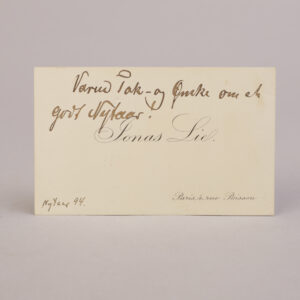 Varm Tak - og Ønske om et
godt Nytaar!
Jonas Lie.
Nytaar 94.
Paris